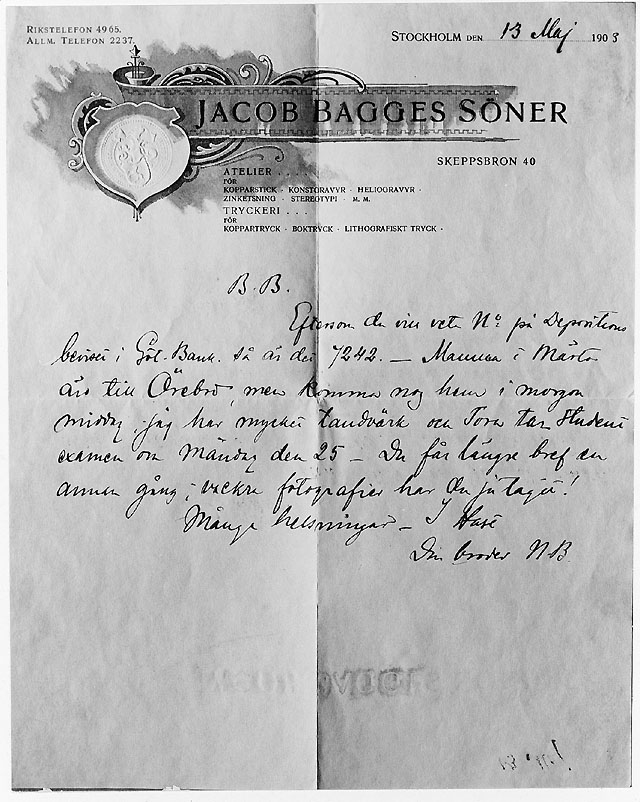 RIKSTELEFON 4965.
ALLM. TELEFON 2237.
STOCKHOLM DEN 13 Maj 1903
JACOB BAGGES SÖNER
SKEPPSBRON 40
ATELIER . . . .
FÖR
KOPPARSTICK · KONSTGRAVYR · HELIOGRAVYR ·
ZINKETSNING · STEREOTYPI · M. M.
TRYCKERI . . .
FÖR
KOPPARTRYCK · BOKTRYCK · LITHOGRAFISKT TRYCK ·
B. B.
Eftersom du vill veta No på Depositions
beviset i Bank. så är det 7242. – Mamma o Märta
äro till Örebro, men komma nog hem i morgon
middag, jag har mycket tandvärk och Tora tar Student
examen om Måndag den 25 – Du får längre bref en
annan gång; vackra fotografier har du ju tagit!
Många helsningar –
Din broder N.B.